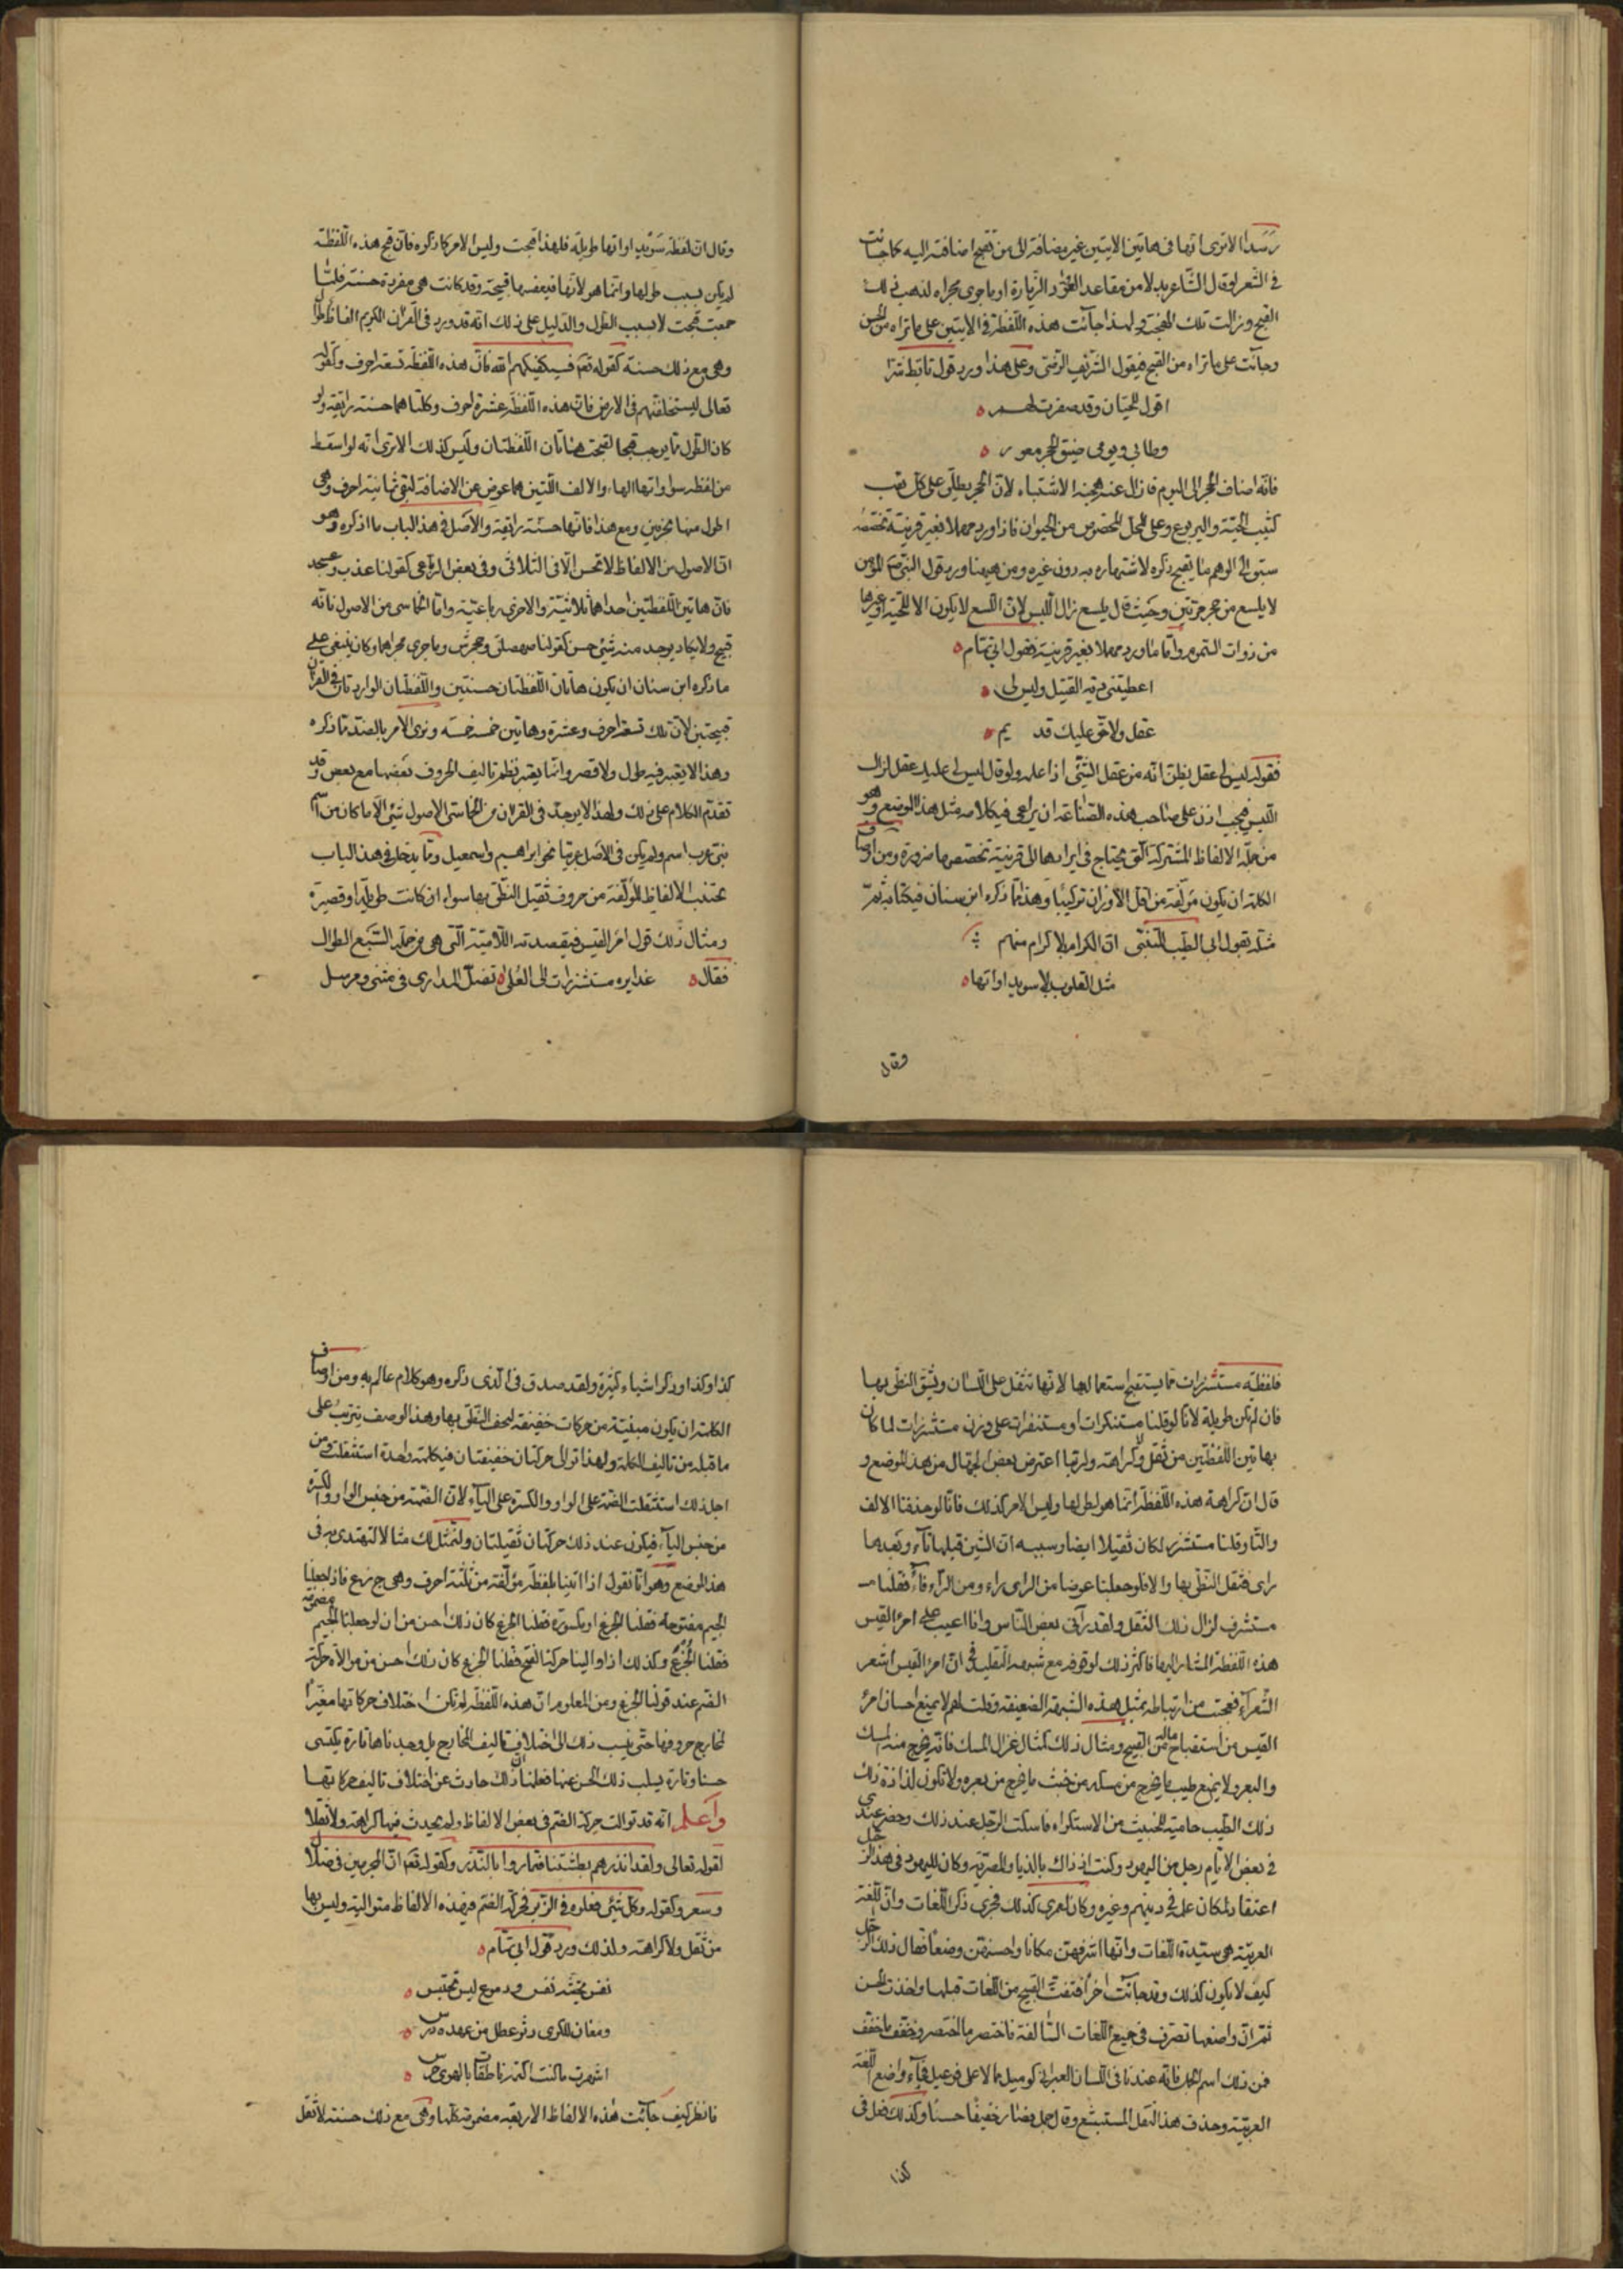 رشدا الا ترى انها فى هاتين الايتين غير مضافة الى من تقبح اضافته اليه كما جائت
فى الشعر ولو قال الشاعر بدلا من مقاعد العواد الزيارة او ما جرى مجراه لذهب ذلك
القبح وزالت تلك الهجنة ولهذا جآئت هذه اللفظة فى الايتين على ما تراه من الحسن
وجآئت على ما تراه من القبح فى قول الشريف الرضى وعلى هذا ورد قول تابط شرا
اقول للحيان وقد صفرت لهم
وطابى ويومى ضيق الحجر معور
فانه اضاف الحجر الى اليوم فازال عنه هجنة الاشتباه لان الحجر يطلق على كل ثقب
كثقب الحية واليربوع وعلى المحل المخصوص من الحيوان فاذا ورد مهملا بغير قرينة تخصصه
سبق الى الوهم ما يقبح ذكره لاشتهاره به دون غيره ومن ههنا ورد قول النبى صم المؤمن
لا يلسع من جحر مرتين وحيث قال يلسع زال اللبس لان اللسع لا يكون الا للحية او غيرها
من ذوات السموم واما ما ورد مهملا بغير قرينة فقول ابى تمام
اعطيتنى دية القتيل وليس لى
عقل ولا حق عليك قديم
فقوله ليس لى عقل يظن انه من عقل الشئ اذا علمه ولو قال ليس لى عليك عقل لزال
اللبس فيجب اذن على صاحب هذه الصناعة ان يراعى فى كلامه مثل هذا الموضع وهو
من جملة الالفاظ المشتركة التى يحتاج فى ايرادها الى قرينة تخصصها ضرورة ومن اوصاف
الكلمة ان يكون مؤلفة من اقل الاوزان تركيبا وهذا مما ذكره ابن سنان فى كتابه ثم
مثله بقول ابى الطيب المتنبى ان الكرام بلا كرام منهم
مثل القلوب بلا سويداواتها
وقال
وقال ان لفظة سويداواتها طويلة فلهذا قبحت وليس الامر كما ذكره فان قبح هذه اللفظة
لم يكن بسبب طولها وانما هو لانها فى نفسها قبيحة وقد كانت هى مفردة حسنة فلما
جمعت قبحت لا بسبب الطول والدليل على ذلك انه قد ورد فى القران الكريم الفاظ طوال
وهى مع ذلك حسنة كقوله تعم فسيكفيكهم الله فان هذه اللفظة تسعة احرف وكقوله
تعالى ليستخلفنهم فى الارض فان هذه اللفظة عشرة احرف وكلتاهما حسنة رايقة ولو
كان الطول مما يوجب قبحا لقبحت هاتان اللفظتان وليس كذلك الا ترى انه لو اسقط
من لفظة سويداواتها الهاء والالف اللتين هما عوض عن الاضافة لبقى ثمانية احرف وهى
اطول منها بحرفين ومع هذا فانها حسنة رايقة والاصل فى هذا الباب ما اذكره وهو
ان الاصول من الالفاظ لا تحسن الا فى الثلاثى وفى بعض الرباعى كقولنا عذب وعسجد
فان هاتين اللفظتين احداهما ثلاثية والاخرى رباعية واما الخماسى من الاصول فانه
قبيح ولا يكاد يوجد منه شئ حسن كقولنا صهصلق وجحمرش وما جرى مجراهما وكان ينبغى على
ما ذكره ابن سنان ان يكون هاتان اللفظتان حسنتين واللفظتان الواردتان فى القران
قبيحتين لان تلك تسعة احرف وعشرة وهاتين خمسة خمسة ونرى الامر بالضد مما ذكره
وهذا لا يعتبر فيه طول ولا قصر وانما يعتبر نظم تاليف الحروف بعضها مع بعض وقد
تقدم الكلام على ذلك ولهذا لا يوجد فى القران من الخماسى الاصول شئ الا ما كان من اسم
نبى عرب اسمه ولم يكن فى الاصل عربيا نحو ابراهيم واسمعيل ومما يدخل فى هذا الباب
تجتنب الالفاظ المؤلفة من حروف ثقيل النطق بها سواء ان كانت طويلة او قصيرة
ومثال ذلك قول امرئ القيس فى قصيدته اللامية التى هى من جملة السبع الطوال
فقال غدايره مستشزرات الى العلى تضل المدارى فى مثنى ومرسل
فلفظة مستشزرات مما يستقبح استعمالها لانها تثقل على اللسان ويشق النطق بها
فان لم تكن طويلة لانا لو قلنا مستنكرات او مستنفرات على وزن مستشزرات لما كان
بهاتين اللفظتين من ثقل ولا كراهة ولربما اعترض بعض الجهال من هذا الموضع و
قال ان كراهة هذه اللفظة انما هو لطولها وليس الامر كذلك فانا لو حذفنا الالف
والتا وقلنا مستشزر لكان ثقيلا ايضا وسببه ان الشين قبلها تآء وبعدها
زاى فثقل النطق بها والا فلو جعلنا عوضا من الزاى راء ومن الرآء فآء فقلنا
مستشرف لزال ذلك الثقل ولقد رآنى بعض الناس وانا اعيب على امرئ القيس
هذه اللفظة المشار اليها فاكثر ذلك لوقوفه مع شبهة التقليد فى ان امرا القيس اشعر
الشعرآء فعجبت من ارتباطه بمثل هذه الشبهة الضعيفة وقلت لهم لا يمنع احسان امرئ
القيس من استقباح ماله من القبيح ومثال ذلك كمثال غزال المسك فانه يخرج منه المسك
والبعر ولا يمنع طيب ما يخرج من مسكه من خبث ما يخرج من بعره ولا تكون لذاذة ذلك
ذلك الطيب حامية للخبيث من الاستكراه فاسكت الرجل عند ذلك وحضر عندى
فى بعض الايام رجل من اليهود وكنت اذ ذاك بالديار المصرية وكان لليهود فى هذا الرجل
اعتقاد لمكان علمه فى دينهم وغيره وكان لعمرى كذلك فجرى ذكر اللغات وان اللغة
العربية هى سيدة اللغات وانها اشرفهن مكانا واحسنهن وضعا فقال ذلك الرجل
كيف لا يكون كذلك وقد جائت اخرا فنفت القبيح من اللغات قبلها واخذت الحسن
ثم ان واضعها تصرف فى جميع اللغات السالفة فاختصر ما اختصر وخفف ما خفف
فمن ذلك اسم الجمل فانه عندنا فى اللسان العبرانى كوميل ممالا على فوعيل فجآء واضع اللغة
العربية وحذف هذا الثقل المستبشع وقال جمل فصار خفيفا حسنا وكذلك فعل فى
كذا
كذا وكذا وذكر اشياء كثيرة ولقد صدق فى الذى ذكره وهو كلام عالم به ومن اوصاف
الكلمة ان يكون مبنية من حركات خفيفة ليخف النطق بها وهذا الوصف يترتب على
ما قبله من تاليف الكلمة ولهذا توالى حركتان خفيفتان فى كلمة واحدة استثقلت ومن
اجل ذلك استثقلت الضمة على الواو والكسرة على اليآء لان الضمة من جنس الواو والكسرة
من جنس اليآء فيكون عند ذلك حركتان ثقيلتان ولنمثل لك مثالا لتهتدى به فى
هذا الموضع وهو انا نقول اذا اتينا بلفظة مؤلفة من ثلثة احرف وهى ج ز ع فاذا جعلنا
الجيم مفتوحة فقلنا الجزع او مكسورة فقلنا الجزع كان ذلك احسن من ان لو جعلنا الجيم مضمومة
فقلنا الجزع وكذلك اذا والينا حركة الفتح فقلنا الجزع كان ذلك احسن من موالاة حركة
الضم عند قولنا الجزع ومن المعلوم ان هذه اللفظة لم تكن اختلاف حركاتها مغيرا
لمخارج حروفها حتى ينسب ذلك الى اختلاف تاليف المخارج بل وجدناها تارة يكتسى
حسنا وتارة يسلب ذلك الحسن عنها فعلمنا ان ذلك حادث عن اختلاف تاليف حركاتها
واعلم انه قد توالت حركة الضم فى بعض الالفاظ ولم يحدث فيها كراهة ولا ثقلا
لقوله تعالى ولقد انذرهم بطشتنا فتماروا بالنذر وكقوله تعم ان المجرمين فى ضلال
وسعر وكقوله وكل شئ فعلوه فى الزبر فحركة الضم فى هذه الالفاظ متوالية وليس بها
من ثقل ولا كراهة ولذلك ورد قول ابى تمام
نفس يحتثه نفس ودموع ليس تحتبس
ومغان للكرى دثر عطل من عهده درس
اشهرت ما كنت اكتمه ناطقات بالهوى خرس
فانظر كيف جآئت هذه الالفاظ الاربعة مضمومة كلها وهى مع ذلك حسنة لا ثقل